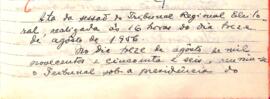 Ata da sessão do Tribunal Regional Eleito
ral, realizada às 16 horas do dia treze
de agosto de 1956
No dia treze de agosto de mil
novecentos e cincoenta e seis, reuniu-se
o Tribunal sob a presidência do